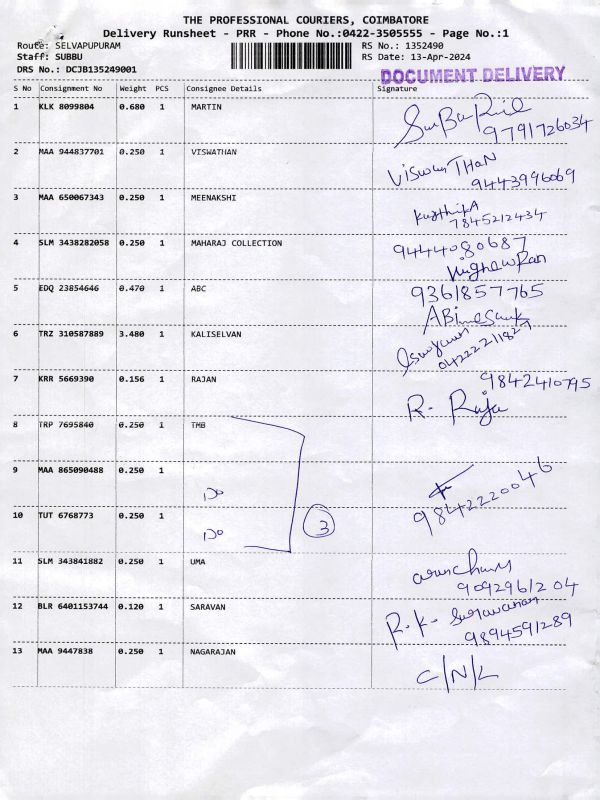 THE PROFESSIONAL COURIERS, COIMBATORE
Delivery Runsheet - PRR - Phone No.:0422-3505555 - Page No.:1
Route: SELVAPUPURAM RS No.: 1352490
Staff: SUBBU RS Date: 13-Apr-2024
DRS No.: DCJB135249001 DOCUMENT DELIVERY
S No Consignment No Weight PCS Consignee Details Signature
1 KLK 8099804 0.680 1 MARTIN
9791726034
2 MAA 944837701 0.250 1 VISWATHAN
VISWANTHAN
9443996069
3 MAA 650067343 0.250 1 MEENAKSHI
7845212434
4 SLM 3438282058 0.250 1 MAHARAJ COLLECTION 9444080687
5 EDQ 23854646 0.470 1 ABC 9361857765
6 TRZ 310587889 3.480 1 KALISELVAN
04222211827
7 KRR 5669390 0.156 1 RAJAN 9842410795
R. Raja
8 TRP 7695840 0.250 1 TMB
9 MAA 865090488 0.250 1
Do
9842220046
10 TUT 6768773 0.250 1
Do 3
11 SLM 343841882 0.250 1 UMA
9092961204
12 BLR 6401153744 0.120 1 SARAVAN
R.K. Saravanan
9894591289
13 MAA 9447838 0.250 1 NAGARAJAN
C/N/L